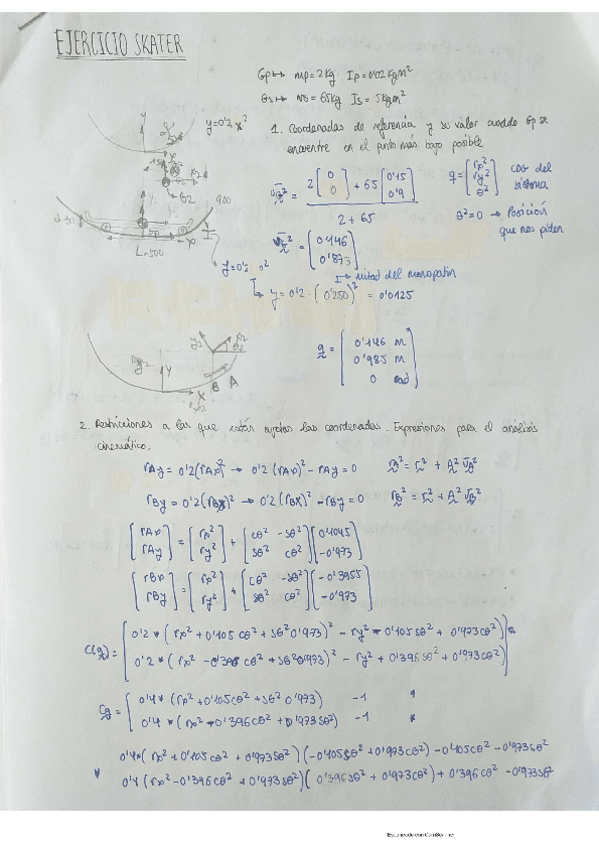 EJERCICIO SKATER
Gp ↦ mp = 2 kg Ip = 0'02 kg m²
Gs ↦ ms = 65 kg Is = 5 kg m²
y = 0'2 x²
1. Coordenadas de referencia y su valor cuando Gp se
encuentre en el punto más bajo posible
2 [0 0] + 65 [0'15 0'9]
2 + 65
q = [rx² ry² θ²] cdg del
sistema
θ² = 0 → Posición
que nos piden
= [0'146 0'873]
900
L = 500
mitad del monopatín
y = 0'2 · (0'250)² = 0'0125
q = [0'146 m 0'985 m 0 rad]
Y
X
B A
2. Restricciones a las que están sujetas las coordenadas. Expresiones para el análisis
cinemático.
rAy = 0'2 (rAx)² → 0'2 (rAx)² - rAy = 0 rA² = r² + A² r̄A²
rBy = 0'2 (rBx)² → 0'2 (rBx)² - rBy = 0 rB² = r² + A² r̄B²
[rAx rAy] = [rx² ry²] + [cθ² -sθ² sθ² cθ²] [0'1045 -0'973]
[rBx rBy] = [rx² ry²] + [cθ² -sθ² sθ² cθ²] [-0'3955 -0'973]
C(q) = [0'2 * (rx² + 0'105 cθ² + sθ² 0'973)² - ry² - 0'105 sθ² + 0'973 cθ²
0'2 * (rx² - 0'396 cθ² + sθ² 0'973)² - ry² + 0'396 sθ² + 0'973 cθ²]
Cq = [0'4 * (rx² + 0'105 cθ² + sθ² 0'973) -1 *
0'4 * (rx² - 0'396 cθ² + 0'973 sθ²) -1 *]
* 0'4 * (rx² + 0'105 cθ² + 0'973 sθ²) (-0'105 sθ² + 0'973 cθ²) - 0'105 cθ² - 0'973 sθ²
0'4 (rx² - 0'396 cθ² + 0'973 sθ²) (0'396 sθ² + 0'973 cθ²) + 0'396 cθ² - 0'973 sθ²
Escaneado con CamScanner